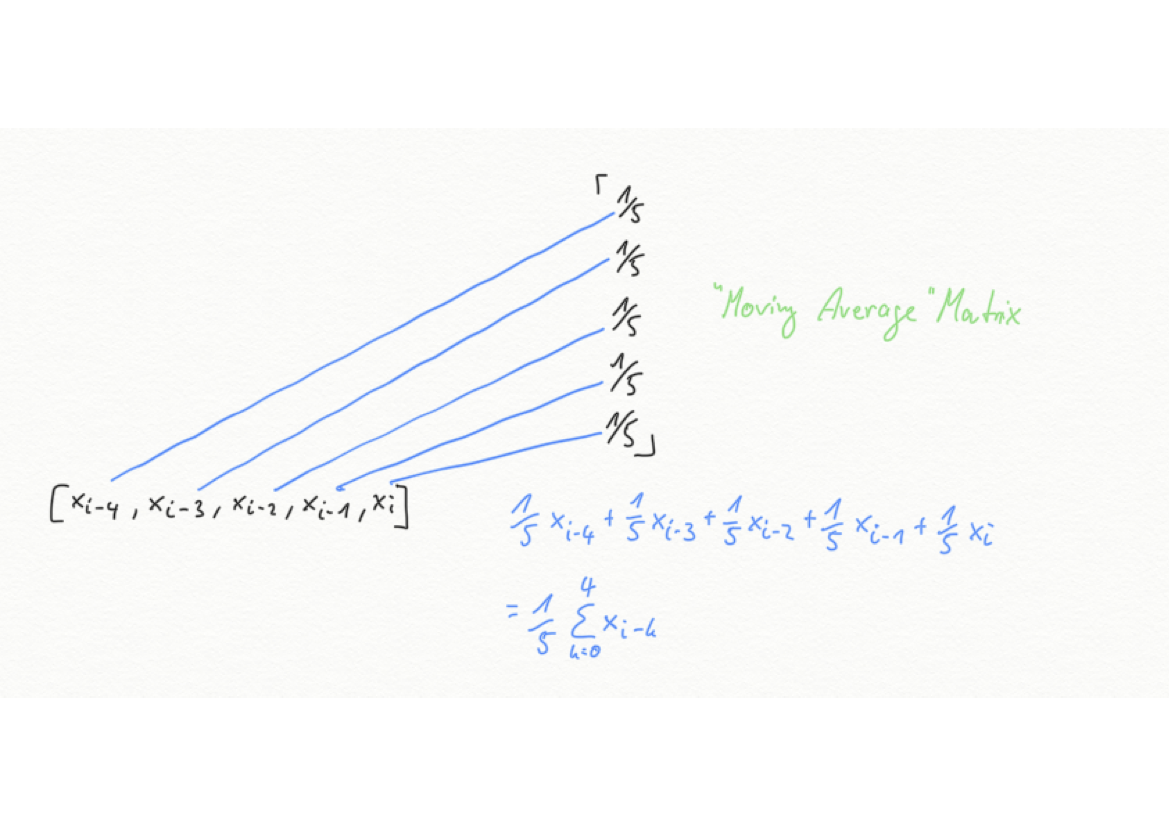 ⌈ 1/5
1/5
"Moving Average" Matrix
1/5
1/5
1/5 ⌋
[x_{i-4}, x_{i-3}, x_{i-2}, x_{i-1}, x_i]
1/5 x_{i-4} + 1/5 x_{i-3} + 1/5 x_{i-2} + 1/5 x_{i-1} + 1/5 x_i
= 1/5 ∑_{k=0}^{4} x_{i-k}